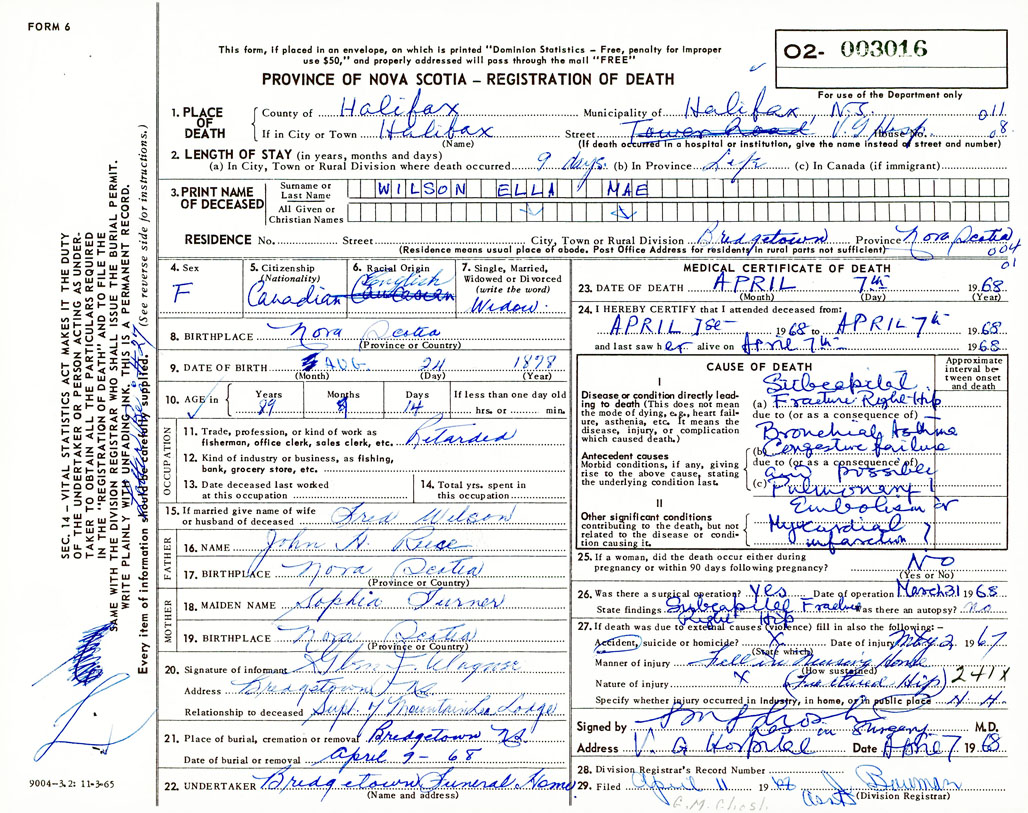 FORM 6
This form, if placed in an envelope, on which is printed "Dominion Statistics – Free, penalty for improper
use $50," and properly addressed will pass through the mail "FREE"
O2- 003016
PROVINCE OF NOVA SCOTIA – REGISTRATION OF DEATH
For use of the Department only
1. PLACE OF DEATH
County of Halifax Municipality of Halifax, N.S. 011
If in City or Town Halifax Street Tower Road V.G. Hosp. House No. 08
(Name) (If death occurred in a hospital or institution, give the name instead of street and number)
2. LENGTH OF STAY (in years, months and days)
(a) In City, Town or Rural Division where death occurred 9 days. (b) In Province Life (c) In Canada (if immigrant)
3. PRINT NAME OF DECEASED
Surname or Last Name WILSON ELLA MAE
All Given or Christian Names
RESIDENCE No. Street City, Town or Rural Division Bridgetown Province Nova Scotia
(Residence means usual place of abode. Post Office Address for residents in rural parts not sufficient) 004
01
4. Sex F
5. Citizenship (Nationality) Canadian
6. Racial Origin English Caucasian
7. Single, Married, Widowed or Divorced (write the word) Widow.
8. BIRTHPLACE Nova Scotia
(Province or Country)
9. DATE OF BIRTH AUG. 24 1878
(Month) (Day) (Year)
10. AGE in Years 89 Months 8 Days 14 If less than one day old hrs. or min.
OCCUPATION
11. Trade, profession, or kind of work as fisherman, office clerk, sales clerk, etc. Retarded
12. Kind of industry or business, as fishing, bank, grocery store, etc.
13. Date deceased last worked at this occupation
14. Total yrs. spent in this occupation
15. If married give name of wife or husband of deceased Fred Wilson
FATHER
16. NAME John H. Rice
17. BIRTHPLACE Nova Scotia
(Province or Country)
MOTHER
18. MAIDEN NAME Sophia Turner
19. BIRTHPLACE Nova Scotia
(Province or Country)
20. Signature of informant
Address Bridgetown N.S.
Relationship to deceased Supt. of Mountain Lea Lodge
21. Place of burial, cremation or removal Bridgetown NS
Date of burial or removal April 9 - 68
22. UNDERTAKER Bridgetown Funeral Home
(Name and address)
MEDICAL CERTIFICATE OF DEATH
23. DATE OF DEATH APRIL 7th 1968
(Month) (Day) (Year)
24. I HEREBY CERTIFY that I attended deceased from:
APRIL 1st 1968 to APRIL 7th 1968
and last saw her alive on April 7th 1968
CAUSE OF DEATH
Approximate interval between onset and death
I
Disease or condition directly leading to death (This does not mean the mode of dying, e.g., heart failure, asthenia, etc. It means the disease, injury, or complication which caused death.)
Subcapital
(a) Fracture Right Hip
due to (or as a consequence of)
Bronchial Asthma
(b) Congestive failure
Antecedent causes
Morbid conditions, if any, giving rise to the above cause, stating the underlying condition last.
due to (or as a consequence of)
and possibly
(c) Pulmonary
Embolism or
II
Other significant conditions contributing to the death, but not related to the disease or condition causing it.
Myocardial
infarction ?
25. If a woman, did the death occur either during pregnancy or within 90 days following pregnancy? NO
(Yes or No)
26. Was there a surgical operation? Yes Date of operation March 31 1968
State findings Subcapital Fracture Right Hip Was there an autopsy? no
27. If death was due to external causes (violence) fill in also the following:–
Accident, suicide or homicide? X Date of injury May 2 1967
(State which)
Manner of injury Fell in Nursing Home
(How sustained)
Nature of injury X (Fractured Hip) 241X
Specify whether injury occurred in industry, in home, or in public place N. H.
Signed by Res in Surgery M.D.
Address V. G Hospital Date April 7 1968
28. Division Registrar's Record Number
29. Filed April 11 1968 J. Bauman
Asst (Division Registrar)
SEC. 14 – VITAL STATISTICS ACT MAKES IT THE DUTY
OF THE UNDERTAKER OR PERSON ACTING AS UNDER-
TAKER TO OBTAIN ALL THE PARTICULARS REQUIRED
IN THE "REGISTRATION OF DEATH" AND TO FILE THE
SAME WITH THE DIVISION REGISTRAR WHO SHALL ISSUE THE BURIAL PERMIT.
WRITE PLAINLY WITH UNFADING INK. THIS IS A PERMANENT RECORD.
Every item of information should be carefully supplied. (See reverse side for instructions.)
9004-3.2: 11-3-65